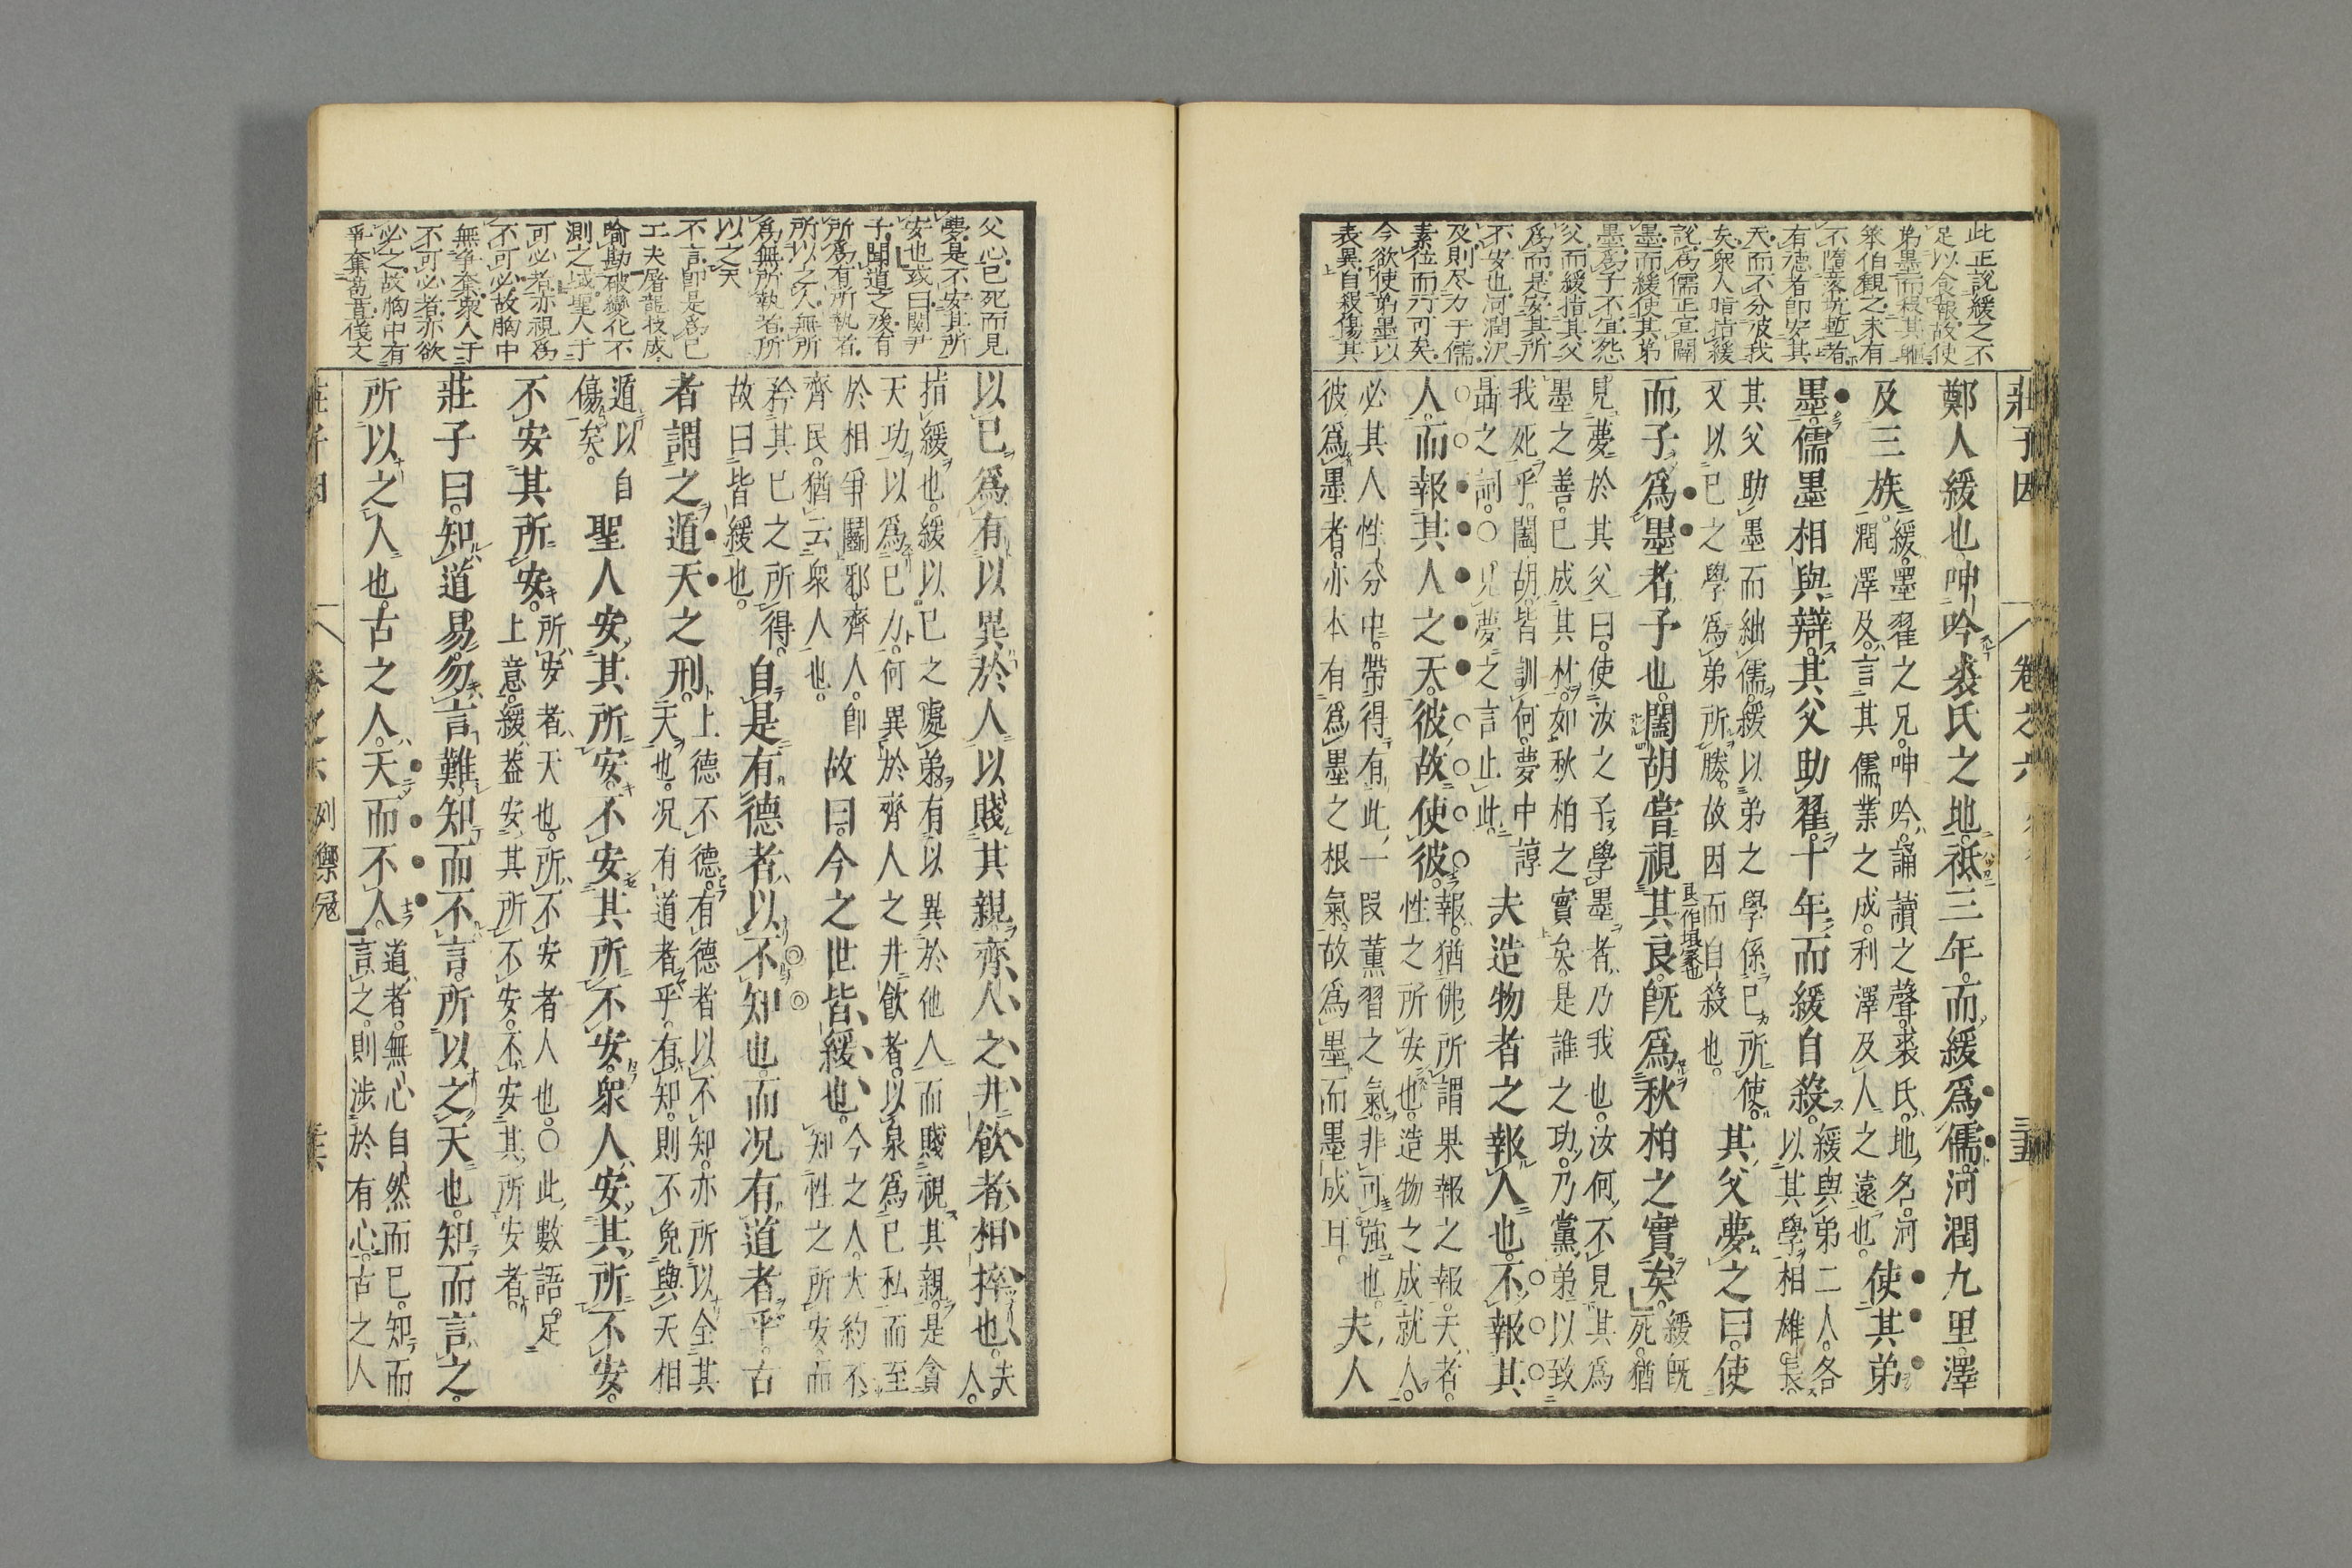 莊子因
卷之六
三十五
此正說緩之不
足以食報故使
弟墨而殺其軀
笨伯觀之未有
不隨落坑塹者
有德者即安其
天而不分彼我
矣衆人啃指緩
說爲儒正宜闢
墨而緩使其弟
墨爲子不宜怨
父而緩指其父
爲而是安其所
不安也河潤沢
及則尽力于儒
素位而行可矣
今欲使弟墨以
表異自殺傷其
鄭人緩也呻吟裘氏之地祇三年而緩爲儒河潤九里澤
及三族
緩墨翟之兄呻吟誦讀之聲裘氏地名河
潤澤及言其儒業之成利澤及人之遠也
使其弟
墨儒墨相與辯其父助翟十年而緩自殺
緩與弟二人各
以其學相雄長
其父助墨而絀儒緩以弟之學係己所使
又以己之學爲弟所勝故因而自殺也
其父夢之曰使
而子爲墨者予也闔胡嘗視其良旣爲秋柏之實矣
緩旣
死猶
見夢於其父曰使汝之子學墨者乃我也汝何不見其爲
墨之善已成其材如秋柏之實矣是誰之功乃黨弟以致
我死乎闔胡皆訓何夢中諄
聒之詞○見夢之言止此
夫造物者之報人也不報其
人而報其人之天彼故使彼
報猶佛所謂果報之報夫者
性之所安也造物之成就人
必其人性分中帶得有此一叚薰習之氣非可強也
彼爲墨者亦本有爲墨之根氣故爲墨而墨成耳
夫人
父心已死而見
夢是不安其所
安也或曰關尹
子聞道之後有
所爲有所執者
所以之人無所
爲無所執者所
以之天
不言即是爲已
工夫屠龍技成
喻勘破變化不
測之域聖人于
可必者亦視爲
不可必故胸中
無爭奪衆人于
不可必者亦欲
必之故胸中有
爭奪苞苴僟文
以己爲有以異於人以賤其親齊人之井飮者相捽也
夫
人
指緩也緩以己之處弟有以異於他人而賤視其親是貪
天功以爲己力何異於齊人之井飮者以泉爲己私而至
於相爭鬬邪齊人即
齊民猶云衆人也
故曰今之世皆緩也
今之人大約不
知性之所安而
矜其己之所得
故曰皆緩也
自是有德者以不知也而况有道者乎古
者謂之遁天之刑
上德不德有德者以不知亦所以全其
天也况有道者乎有知則不免與天相
遁以自
傷矣
聖人安其所安不安其所不安衆人安其所不安
不安其所安
所安者天也所不安者人也○此數語足
上意緩蓋安其所不安不安其所安者
莊子曰知道易勿言難知而不言所以之天也知而言之
所以之人也古之人天而不人
道者無心自然而已知而
言之則涉於有心古之人
列禦寇